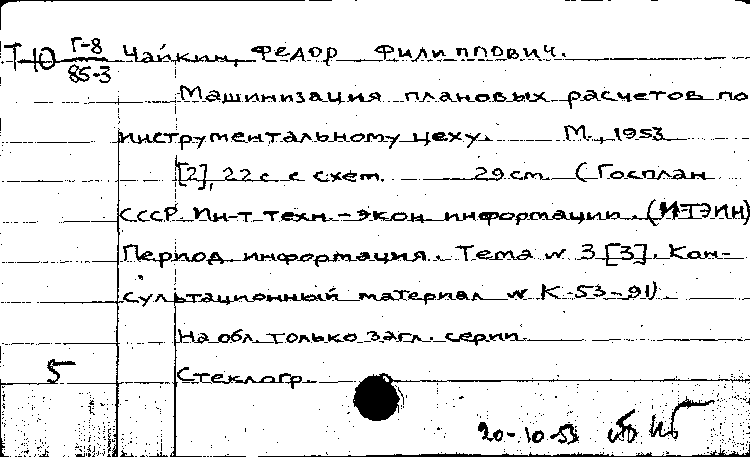 Т-10 Г-8 Чайкин, Федор Филиппович.
85-3
Машинизация плановых расчетов по
инструментальному цеху. М., 1953
[2], 22 с с схем. 29 см (Госплан
СССР Ин-т техн.-экон информации. (ИТЭИН)
Период информация. Тема № 3 [3]. Кон-
сультационный материал № К-53-91)
На обл. только загл. серии
5 Стеклогр.
20-10-53